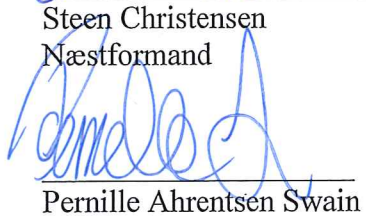 Steen Christensen
Næstformand
Pernille A
Pernille Ahrentsen Swain